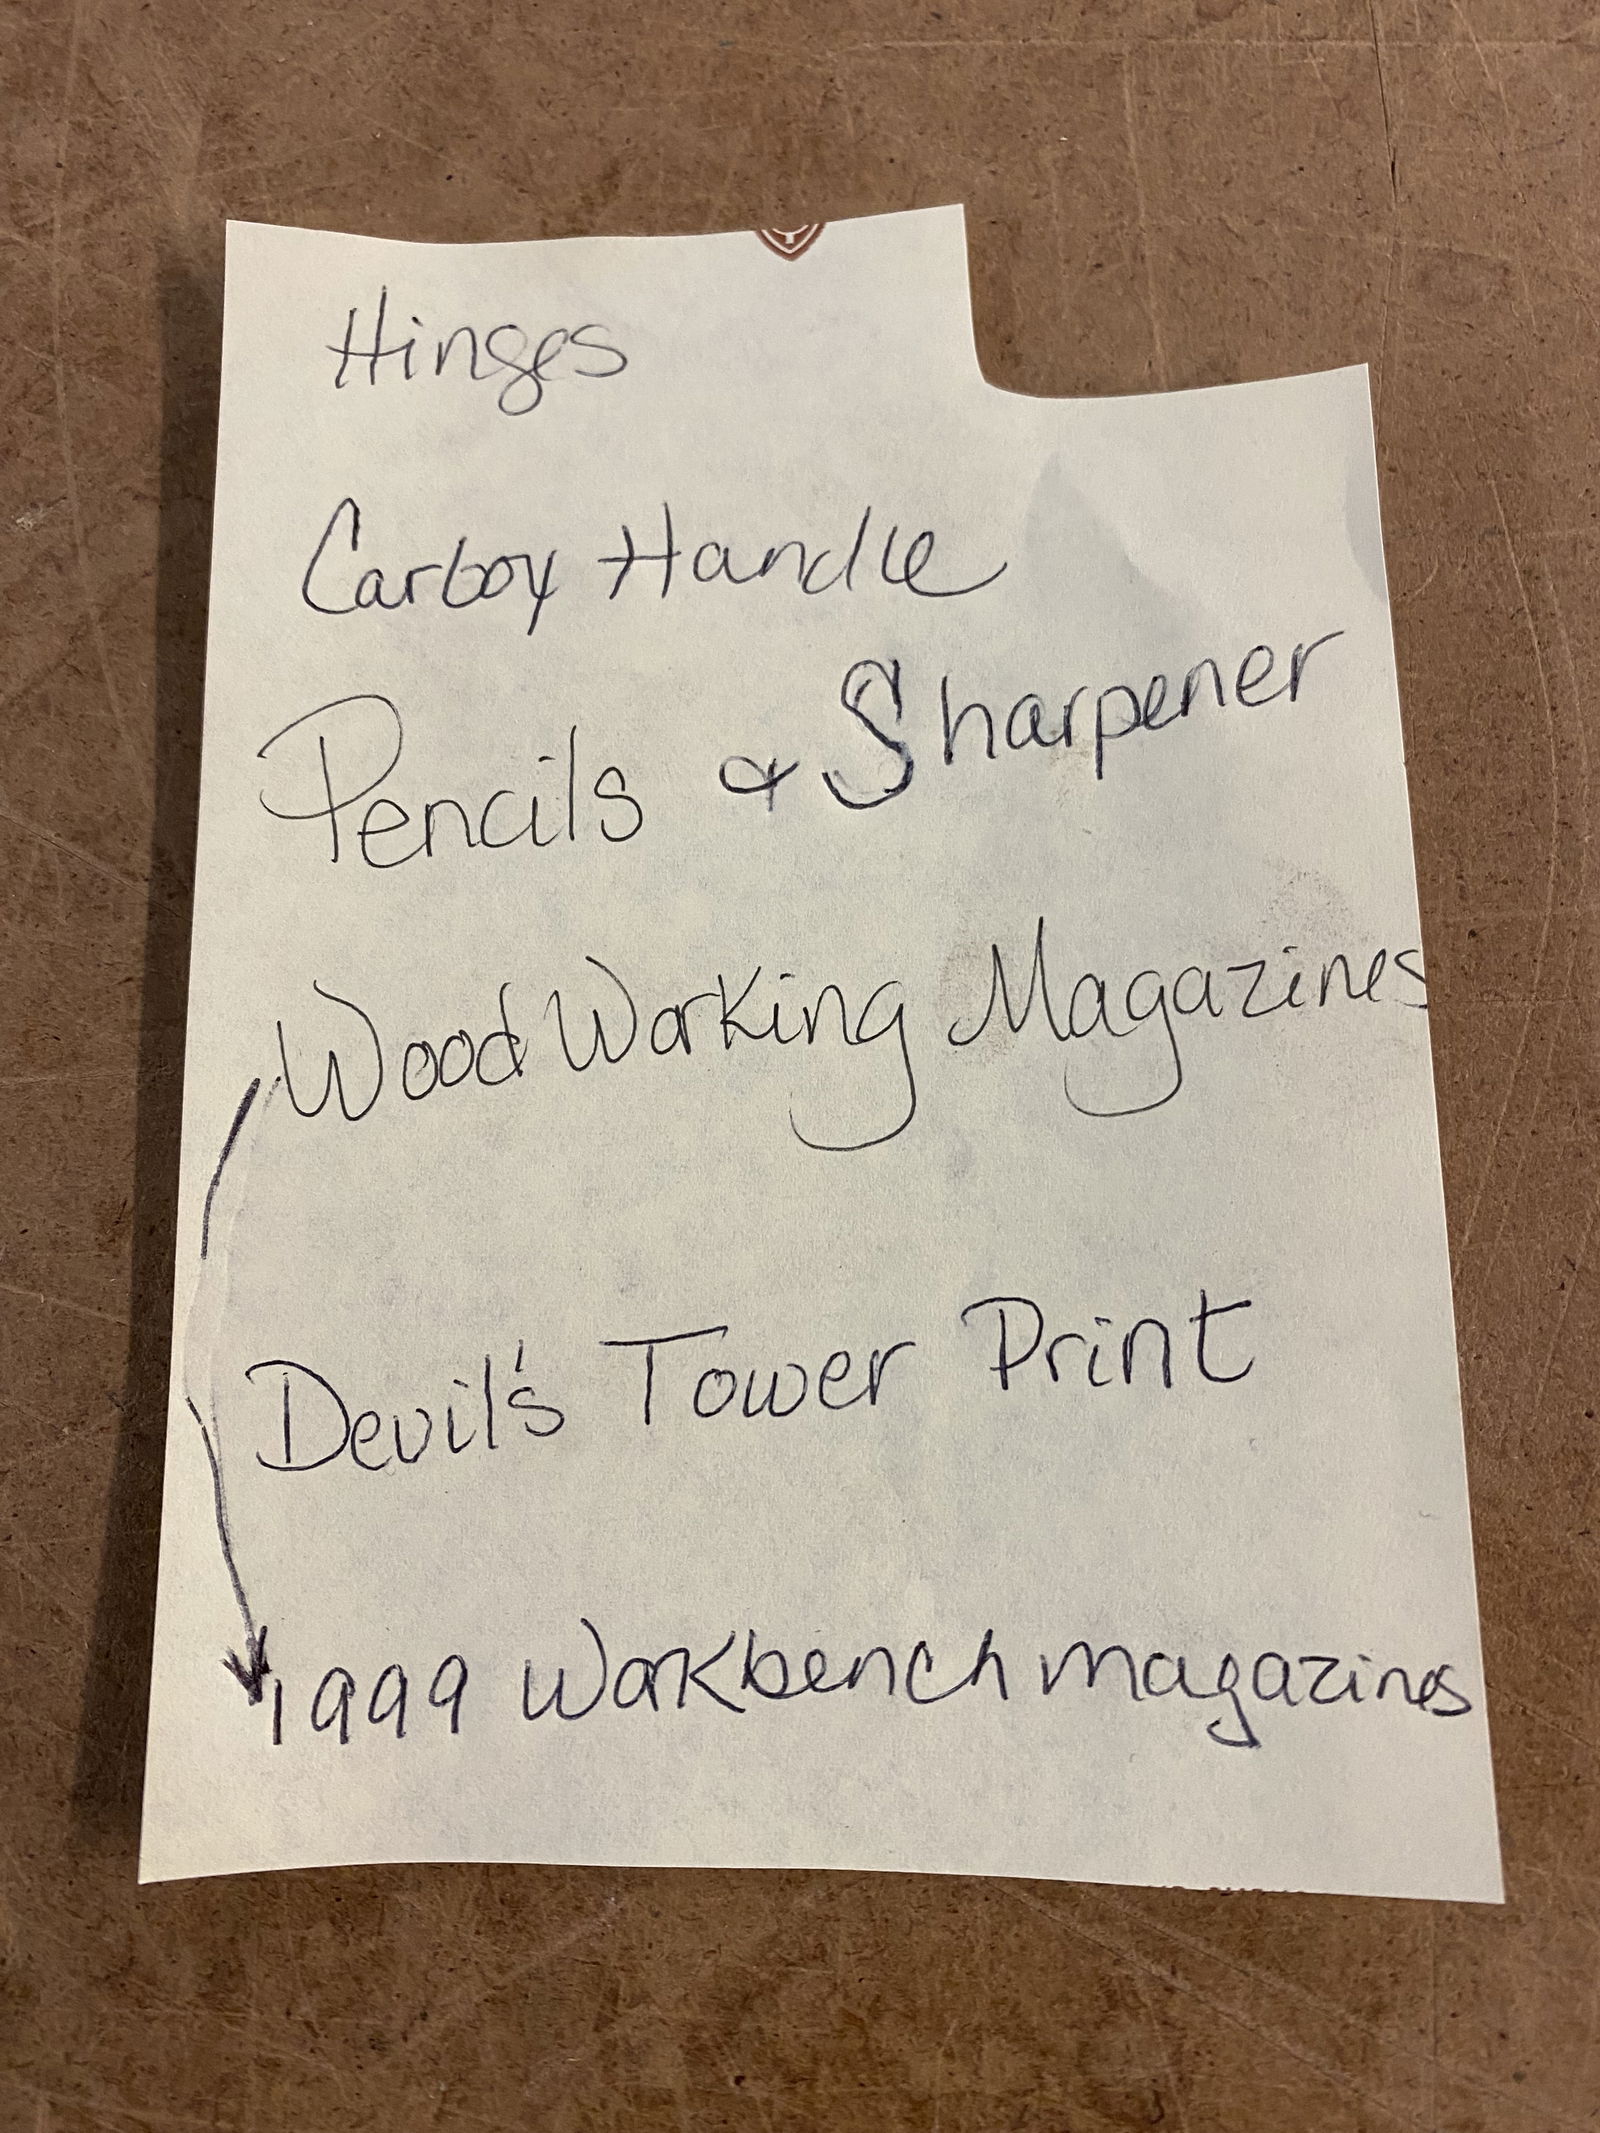 Hinges
Carboy Handle
Pencils & Sharpener
WoodWorking Magazines
Devil's Tower Print
1999 Workbench magazines